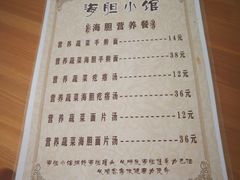 海胆小馆
海胆营养餐
营养蔬菜手擀面------14元
营养蔬菜海胆手擀面------38元
营养蔬菜疙瘩汤------12元
营养蔬菜海胆疙瘩汤------36元
营养蔬菜面片汤------12元
营养蔬菜海胆面片汤------36元